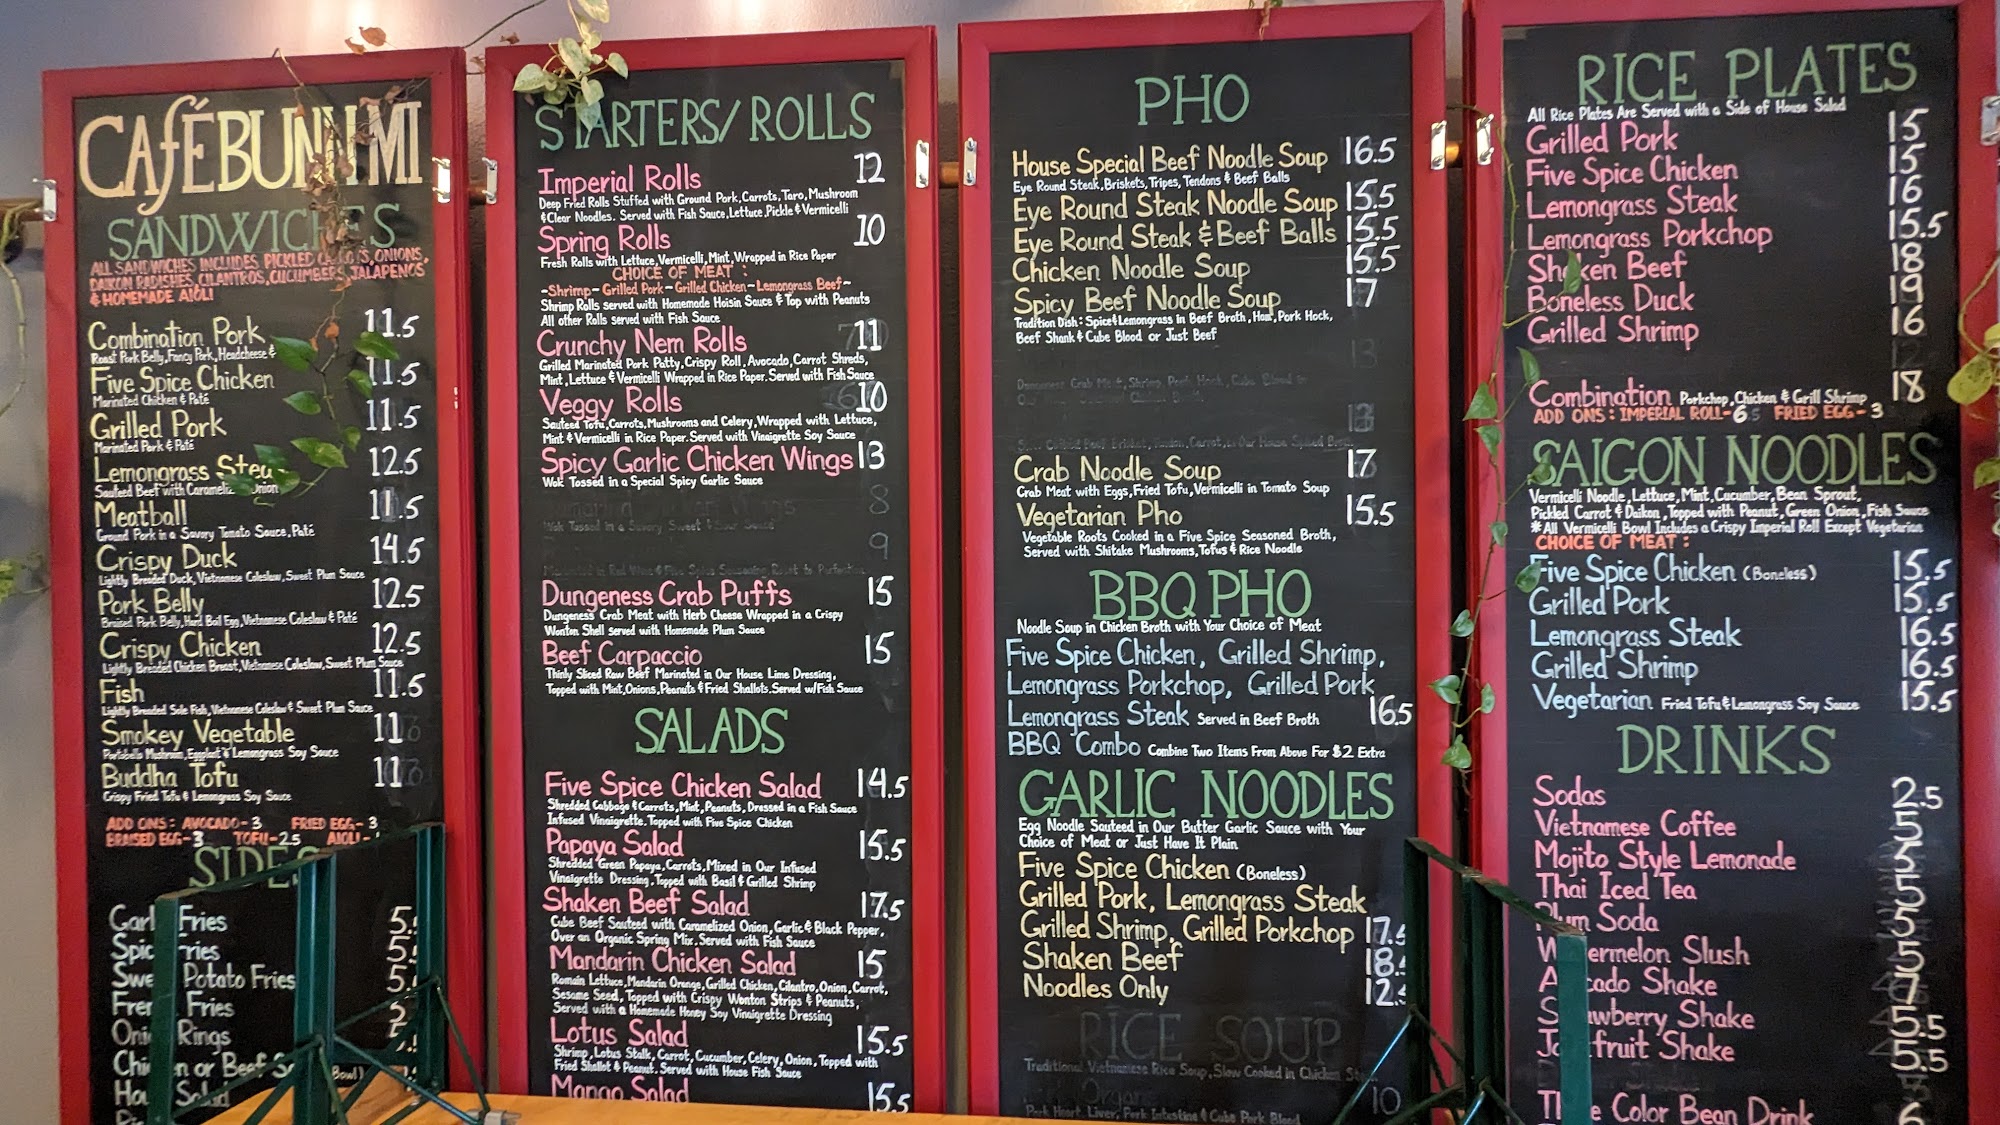 CAFÉ BUNN MI
SANDWICHES
ALL SANDWICHES INCLUDES PICKLED CARROTS, ONIONS,
DAIKON RADISHES, CILANTROS, CUCUMBERS, JALAPENOS
& HOMEMADE AIOLI
Combination Pork 11.5
Roast Pork Belly, Fancy Pork, Headcheese &
Five Spice Chicken 11.5
Marinated Chicken & Paté
Grilled Pork 11.5
Marinated Pork & Paté
Lemongrass Steak 12.5
Sauteed Beef with Caramelized Onion
Meatball 11.5
Ground Pork in a Savory Tomato Sauce, Paté
Crispy Duck 14.5
Lightly Breaded Duck, Vietnamese Coleslaw, Sweet Plum Sauce
Pork Belly 12.5
Braised Pork Belly, Hard Boil Egg, Vietnamese Coleslaw & Paté
Crispy Chicken 12.5
Lightly Breaded Chicken Breast, Vietnamese Coleslaw, Sweet Plum Sauce
Fish 11.5
Lightly Breaded Sole Fish, Vietnamese Coleslaw & Sweet Plum Sauce
Smokey Vegetable 11
Portobello Mushroom, Eggplant & Lemongrass Soy Sauce
Buddha Tofu 11
Crispy Fried Tofu & Lemongrass Soy Sauce
ADD ONS: AVOCADO-3 FRIED EGG-3
BRAISED EGG-3 TOFU-2.5 AIOLI-
SIDES
Garlic Fries 5.
Fries 5.
Sweet Potato Fries 5.
French Fries
Onion Rings
Chicken or Beef (Bowl)
House Salad
STARTERS/ROLLS
Imperial Rolls 12
Deep Fried Rolls Stuffed with Ground Pork, Carrots, Taro, Mushroom
& Clear Noodles. Served with Fish Sauce, Lettuce, Pickle & Vermicelli
Spring Rolls 10
Fresh Rolls with Lettuce, Vermicelli, Mint, Wrapped in Rice Paper
CHOICE OF MEAT:
-Shrimp-Grilled Pork-Grilled Chicken-Lemongrass Beef-
Shrimp Rolls served with Homemade Hoisin Sauce & Top with Peanuts
All other Rolls served with Fish Sauce
Crunchy Nem Rolls 11
Grilled Marinated Pork Patty, Crispy Roll, Avocado, Carrot Shreds,
Mint, Lettuce & Vermicelli Wrapped in Rice Paper. Served with Fish Sauce
Veggy Rolls 10
Sauteed Tofu, Carrots, Mushrooms and Celery, Wrapped with Lettuce,
Mint & Vermicelli in Rice Paper. Served with Vinaigrette Soy Sauce
Spicy Garlic Chicken Wings 13
Wok Tossed in a Special Spicy Garlic Sauce
8
Wok Tossed in a Savory Sweet & Sour Sauce
9
Dungeness Crab Puffs 15
Dungeness Crab Meat with Herb Cheese Wrapped in a Crispy
Wonton Shell served with Homemade Plum Sauce
Beef Carpaccio 15
Thinly Sliced Raw Beef Marinated in Our House Lime Dressing,
Topped with Mint, Onions, Peanuts & Fried Shallots. Served w/Fish Sauce
SALADS
Five Spice Chicken Salad 14.5
Shredded Cabbage & Carrots, Mint, Peanuts, Dressed in a Fish Sauce
Infused Vinaigrette. Topped with Five Spice Chicken
Papaya Salad 15.5
Shredded Green Papaya, Carrots, Mixed in Our Infused
Vinaigrette Dressing, Topped with Basil & Grilled Shrimp
Shaken Beef Salad 17.5
Cube Beef Sauteed with Caramelized Onion, Garlic & Black Pepper,
Over an Organic Spring Mix. Served with Fish Sauce
Mandarin Chicken Salad 15
Romain Lettuce, Mandarin Orange, Grilled Chicken, Cilantro, Onion, Carrot,
Sesame Seed, Topped with Crispy Wonton Strips & Peanuts,
Served with a Homemade Honey Soy Vinaigrette Dressing
Lotus Salad 15.5
Shrimp, Lotus Stalk, Carrot, Cucumber, Celery, Onion, Topped with
Fried Shallot & Peanut. Served with House Fish Sauce
Mango Salad 15.5
PHO
House Special Beef Noodle Soup 16.5
Eye Round Steak, Briskets, Tripes, Tendons & Beef Balls
Eye Round Steak Noodle Soup 15.5
Eye Round Steak & Beef Balls 15.5
Chicken Noodle Soup 15.5
Spicy Beef Noodle Soup 17
Tradition Dish: Spice & Lemongrass in Beef Broth, Ham, Pork Hock,
Beef Shank & Cube Blood or Just Beef
13
13
Crab Noodle Soup 17
Crab Meat with Eggs, Fried Tofu, Vermicelli in Tomato Soup
Vegetarian Pho 15.5
Vegetable Roots Cooked in a Five Spice Seasoned Broth,
Served with Shitake Mushrooms, Tofus & Rice Noodle
BBQ PHO
Noodle Soup in Chicken Broth with Your Choice of Meat
Five Spice Chicken, Grilled Shrimp,
Lemongrass Porkchop, Grilled Pork
Lemongrass Steak Served in Beef Broth 16.5
BBQ Combo Combine Two Items From Above For $2 Extra
GARLIC NOODLES
Egg Noodle Sauteed in Our Butter Garlic Sauce with Your
Choice of Meat or Just Have It Plain
Five Spice Chicken (Boneless)
Grilled Pork, Lemongrass Steak
Grilled Shrimp, Grilled Porkchop 17.5
Shaken Beef 18.
Noodles Only 12.
RICE SOUP
Traditional Vietnamese Rice Soup, Slow Cooked in Chicken
10
Pork Heart, Liver, Pork Intestine & Cube Pork Blood
RICE PLATES
All Rice Plates Are Served with a Side of House Salad
Grilled Pork 15
Five Spice Chicken 15
Lemongrass Steak 16
Lemongrass Porkchop 15.5
Shaken Beef 18
Boneless Duck 19
Grilled Shrimp 16
Combination Porkchop, Chicken & Grill Shrimp 18
ADD ONS: IMPERIAL ROLL-6 FRIED EGG-3
SAIGON NOODLES
Vermicelli Noodle, Lettuce, Mint, Cucumber, Bean Sprout,
Pickled Carrot & Daikon, Topped with Peanut, Green Onion, Fish Sauce
*All Vermicelli Bowl Includes a Crispy Imperial Roll Except Vegetarian
CHOICE OF MEAT:
Five Spice Chicken (Boneless) 15.5
Grilled Pork 15.5
Lemongrass Steak 16.5
Grilled Shrimp 16.5
Vegetarian Fried Tofu & Lemongrass Soy Sauce 15.5
DRINKS
Sodas 2.5
Vietnamese Coffee 5
Mojito Style Lemonade 5
Thai Iced Tea 5
Plum Soda 5
Watermelon Slush 5
Avocado Shake 7
Strawberry Shake 5.5
Jackfruit Shake 5.5
Three Color Bean Drink 6